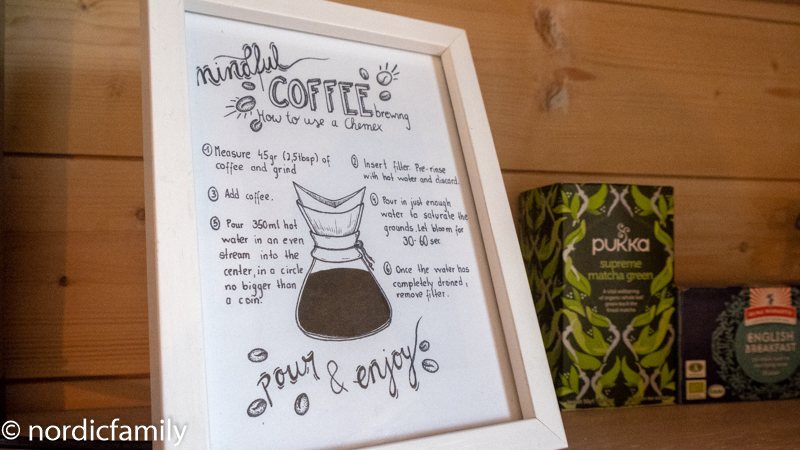 mindful
COFFEE brewing
How to use a Chemex
① Measure 45gr (2,5tbsp) of
coffee and grind
② Insert filter. Pre-rinse
with hot water and discard.
③ Add coffee.
④ Pour in just enough
water to saturate the
grounds. Let bloom for
30-60 sec
⑤ Pour 350ml hot
water in an even
stream into the
center, in a circle
no bigger than
a coin.
⑥ Once the water has
completely drained,
remove filter.
pour & enjoy
pukka
supreme
matcha green
A vital wellbeing
of organic whole leaf
green tea & the
finest matcha
ENGLISH
BREAKFAST
© nordicfamily